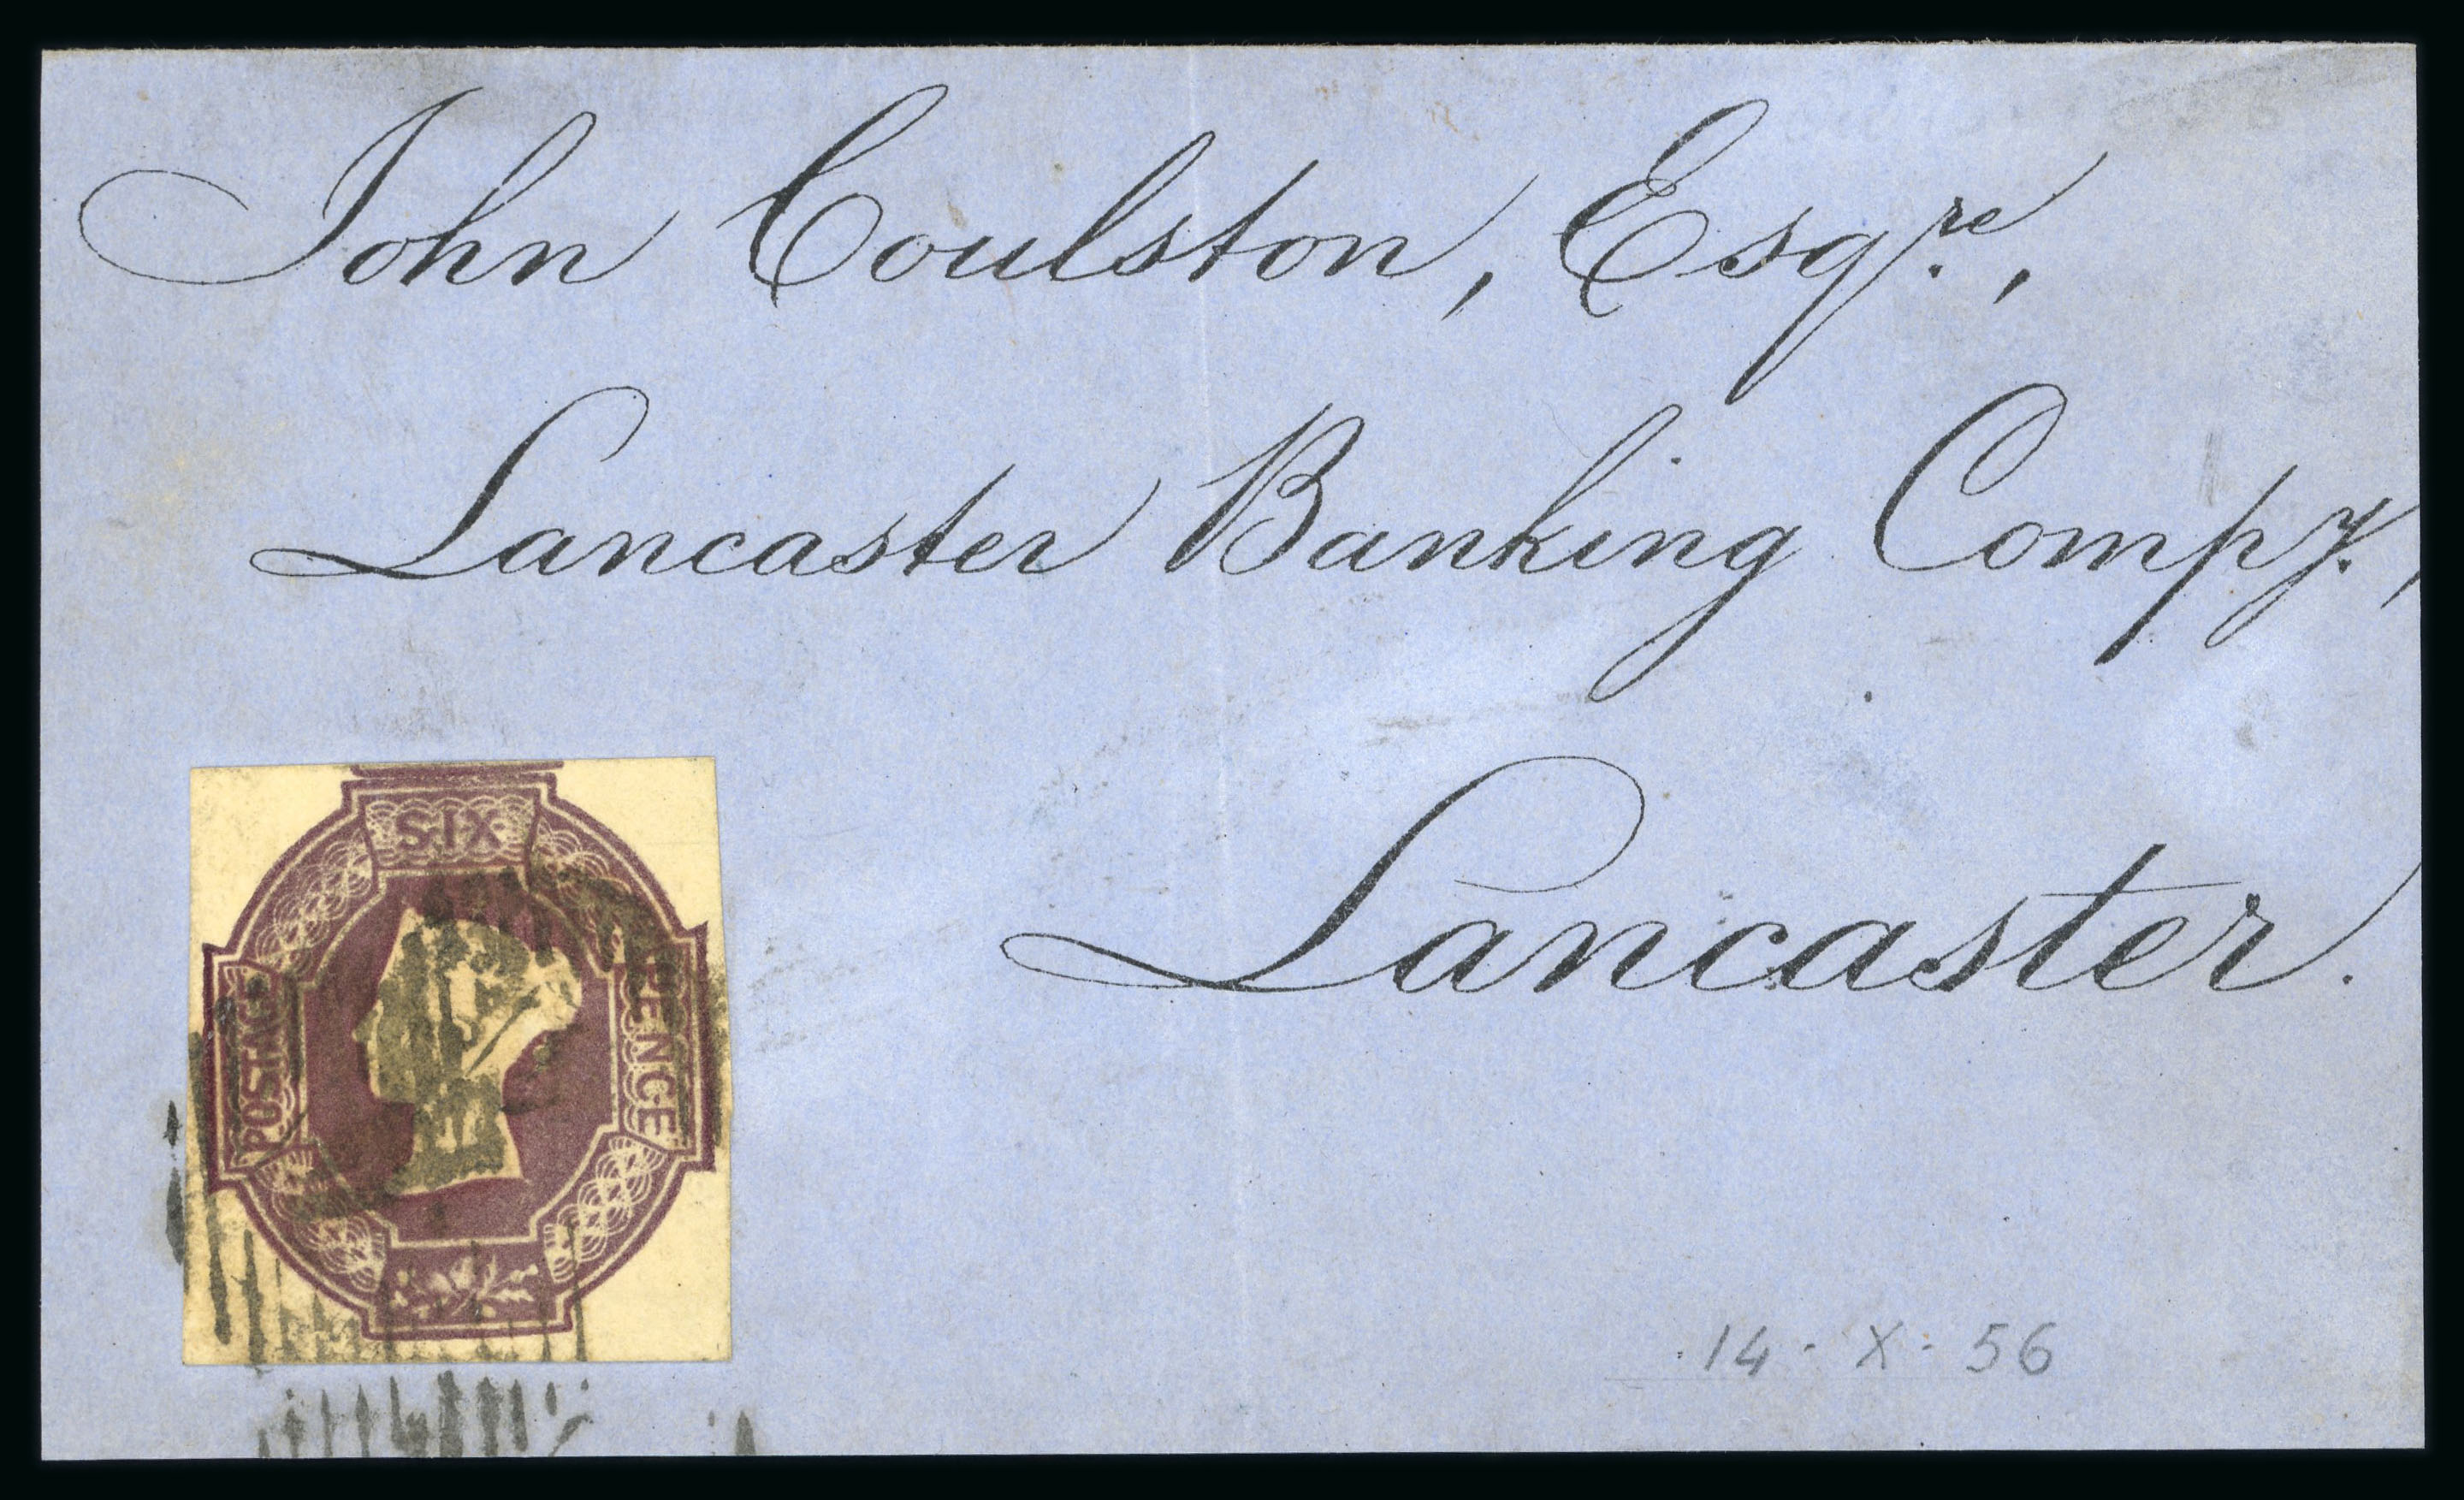 John Coulston, Esqre.,
Lancaster Banking Compy.,
Lancaster.
SIX
POSTAGE
PENCE
14 · X · 56